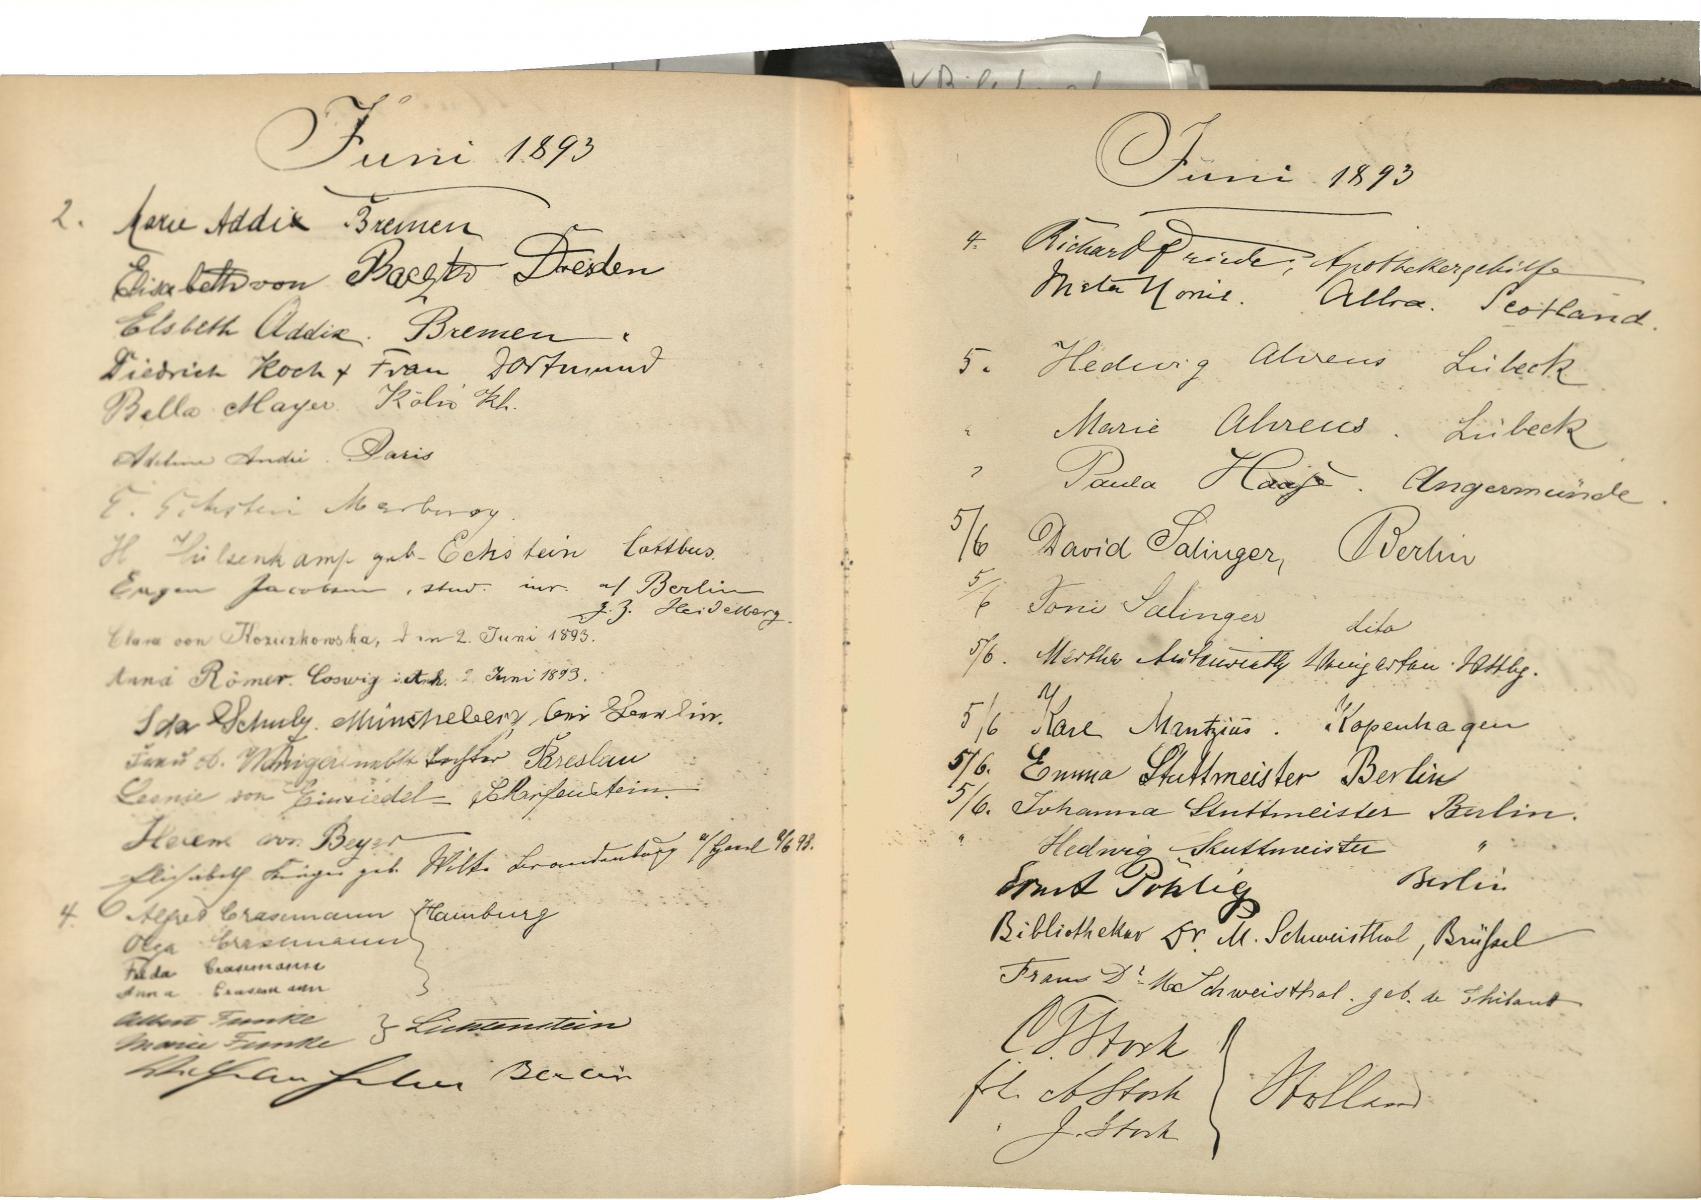 Juni 1893
2. Marie Addix Bremen
Elisabeth von Dresden
Elsbeth Addix. Bremen
Diedrich Koch & Frau Dortmund
Bella Mayer. Köln Rh.
Adeline André. Paris
H Hülsenkamp geb. Eckstein Cottbus.
Eugen Jacobsen, stud. iur. a/ Berlin
z. Z. Heidelberg.
Clara von den 2. Juni 1893.
Anna Römer. Coswig i. Anh. 2 Juni 1893.
Ida Schulz. Müncheberg, bei Berlin.
nebst Tochter Breslau
von Einsiedel - Scharfenstein.
Helene von Beyer
Elisabeth geb. Brandenburg a/Havel
4. Alfred Crasemann } Hamburg
Olga Crasemann
Frida Crasemann
Anna Crasemann
Albert Funke } Lichtenstein
Marie Funke
Berlin
Juni 1893
4. Richard Friede, Apothekergehilfe
Meta Alloa. Scotland.
5. Hedwig Ahrens Lübeck
" Marie Ahrens. Lübeck
" Paula Angermünde.
5/6 David Salinger, Berlin
5/6 Toni Salinger dito
5/6. Martha Weingarten
5/6 Karl Mantzius. Kopenhagen
5/6. Emma Stuttmeister Berlin
5/6. Johanna Stuttmeister Berlin.
" Hedwig Stuttmeister "
Ernst Pohlig Berlin
Bibliothekar Dr. M. Schweisthal, Brüssel
Frau Dr. M Schweisthal. geb. de
C T Stork } Holland
frl. A Stork
" J. Stork